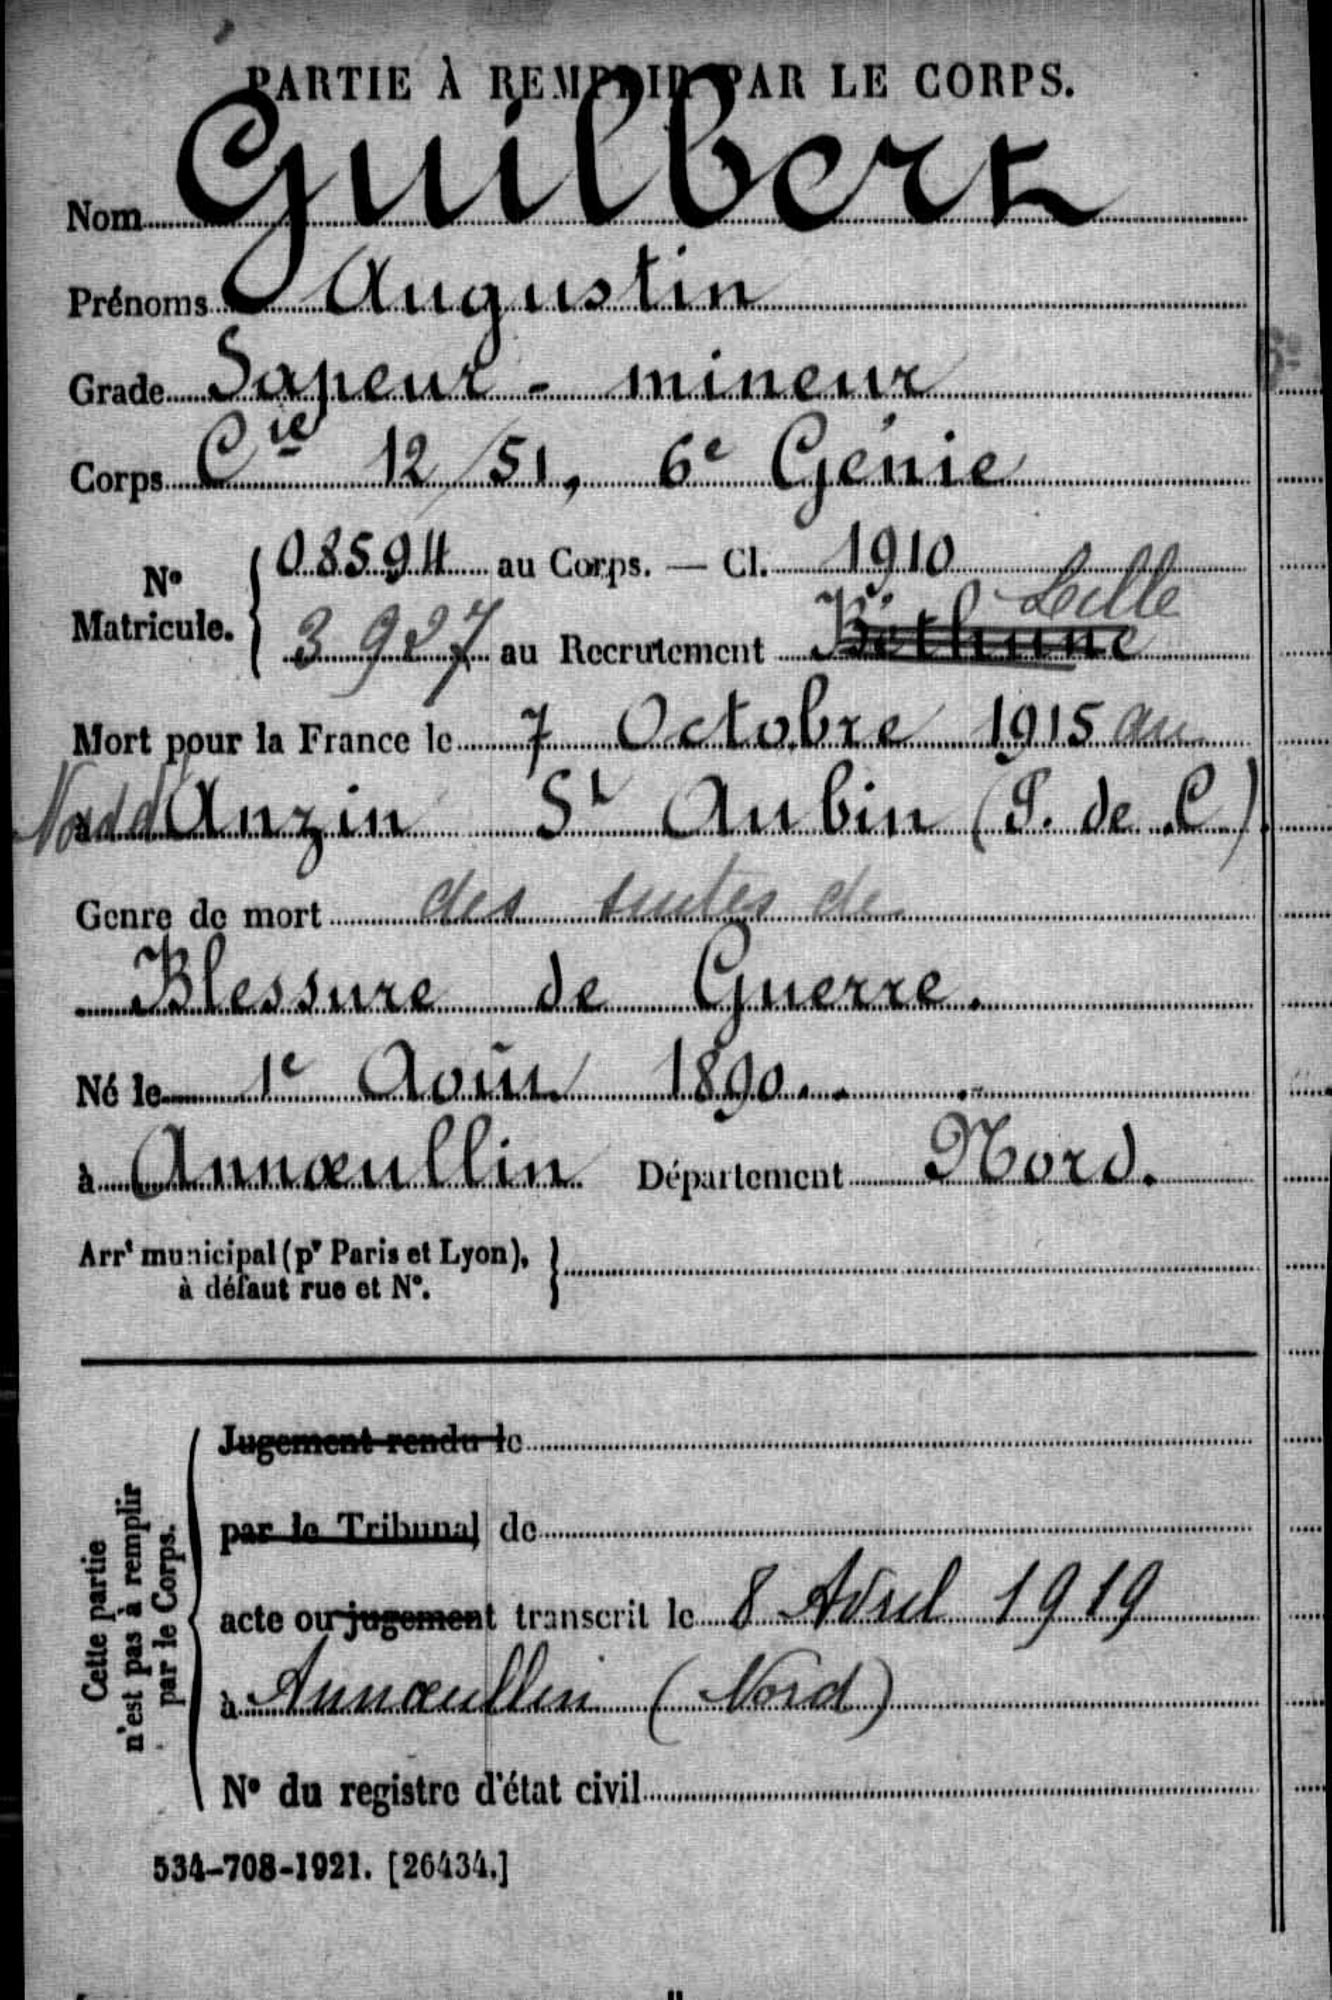 PARTIE À REMPLIR PAR LE CORPS.
Nom Guilbert
Prénoms Augustin
Grade Sapeur - mineur
Corps Cie 12/51, 6e Génie
No Matricule. { 08594 au Corps. — Cl. 1910
3927 au Recrutement Béthune Lille
Mort pour la France le 7 Octobre 1915 au
Nord d'Anzin St Aubin (P. de C)
Genre de mort des suites de
Blessure de Guerre.
Né le 1e Août 1890.
à Annœullin Département Nord.
Arrt municipal (pr Paris et Lyon),
à défaut rue et No.
Cette partie
n'est pas à remplir
par le Corps.
Jugement rendu le
par le Tribunal de
acte ou jugement transcrit le 8 Avril 1919
à Annœullin (Nord)
No du registre d'état civil
534-708-1921. [26434.]